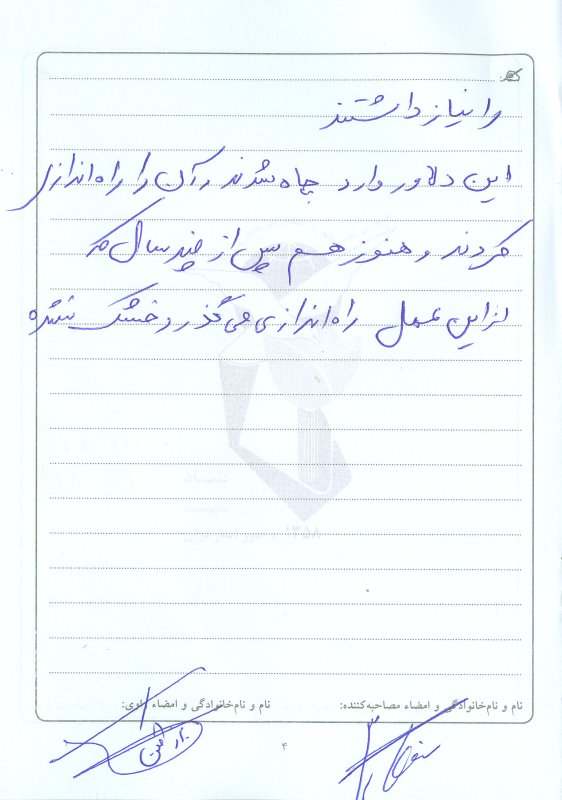 را نیاز داشتند
این دلاور وارد چاه شدند و آن را راه اندازی
کردند و هنوز هم پس از چند سال که
از این عمل راه اندازی می گذرد خشک نشده
نام و نام‌خانوادگی و امضاء مصاحبه‌کننده:
نام و نام‌خانوادگی و امضاء راوی:
۴